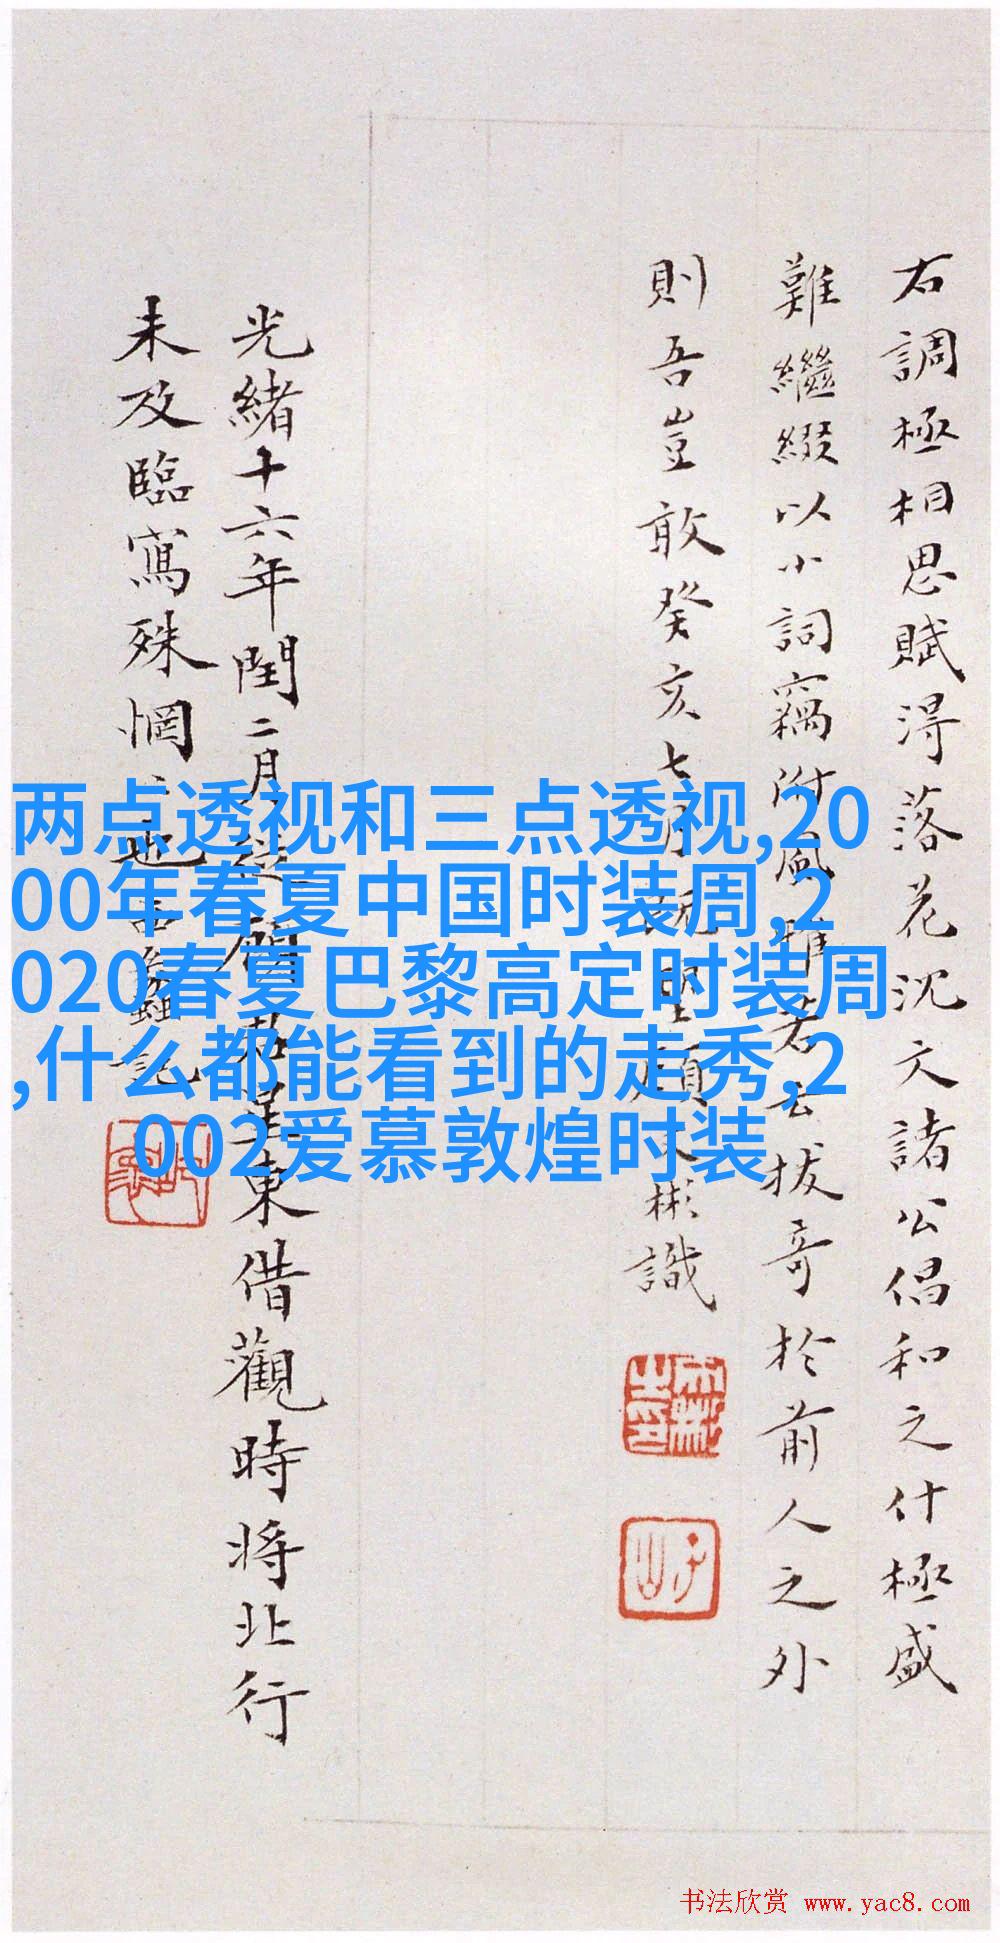 右調極相思賦得落花沈文諸公倡和之什極盛
難繼綴以小詞竊附風雅若云拔奇於前人之外
則吾豈敢癸亥七月既望顧文彬識
光緒十六年閏二月從顧東借觀時將北行
未及臨寫殊惘也記
两点透视和三点透视,20
00年春夏中国时装周,2
020春夏巴黎高定时装周
,什么都能看到的走秀,2
002爱慕敦煌时装
书法欣赏 www.yac8.com